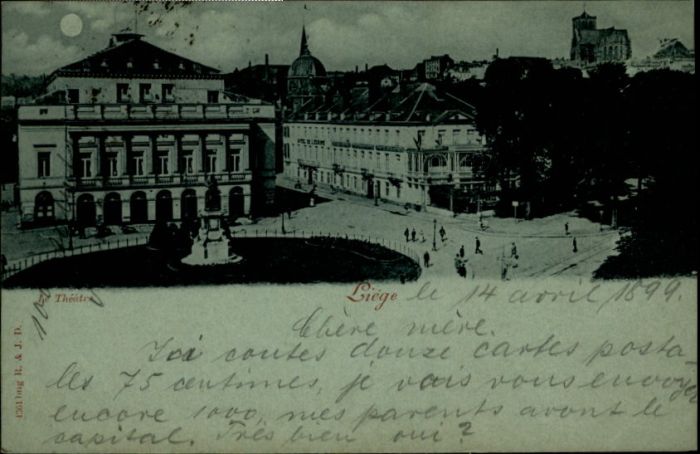 HOTEL DE L'EUROPE
Le Théâtre
Liége le 14 avril 1899.
Chère mère.
Ici coutes douze cartes posta
les 75 centimes, je vais vous envoyer
encore 1000, mes parents avont le
capital. Très bien oui?
R. & J. D.